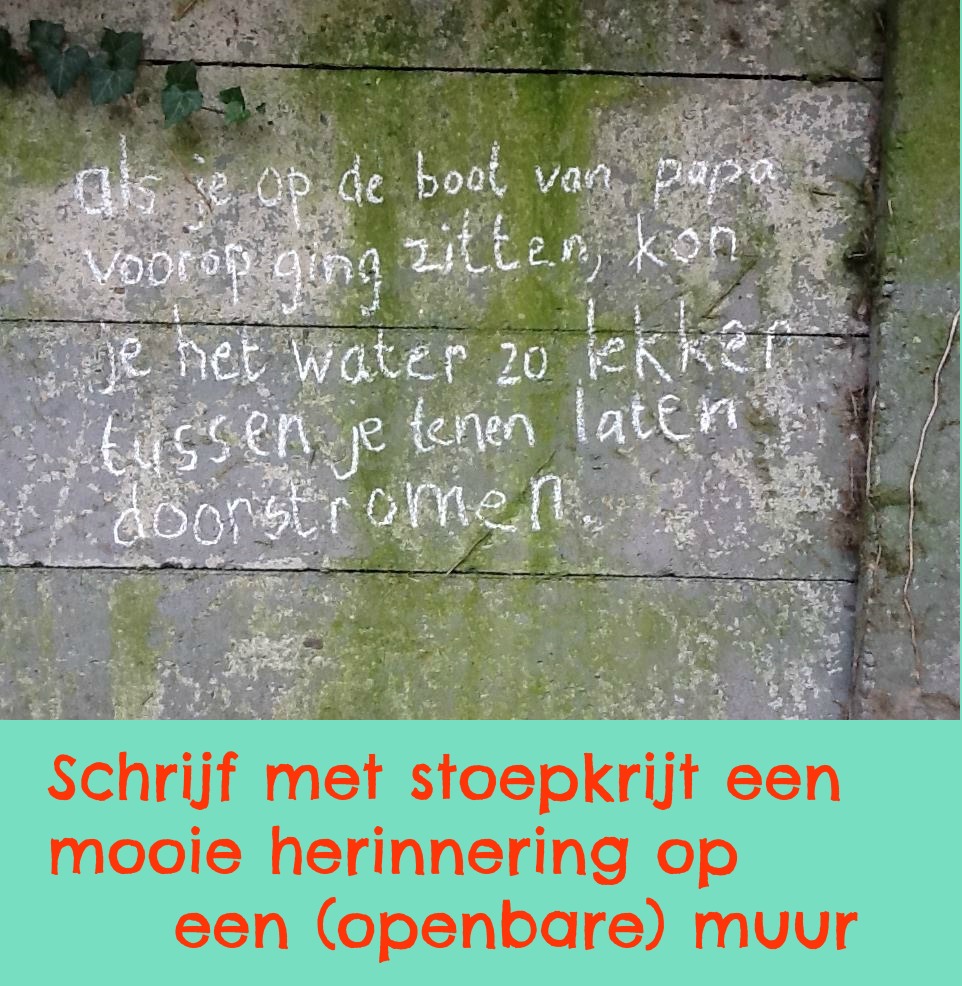 als je op de boot van papa
voorop ging zitten, kon
je het water zo lekker
tussen je tenen laten
doorstromen.
Schrijf met stoepkrijt een
mooie herinnering op
een (openbare) muur